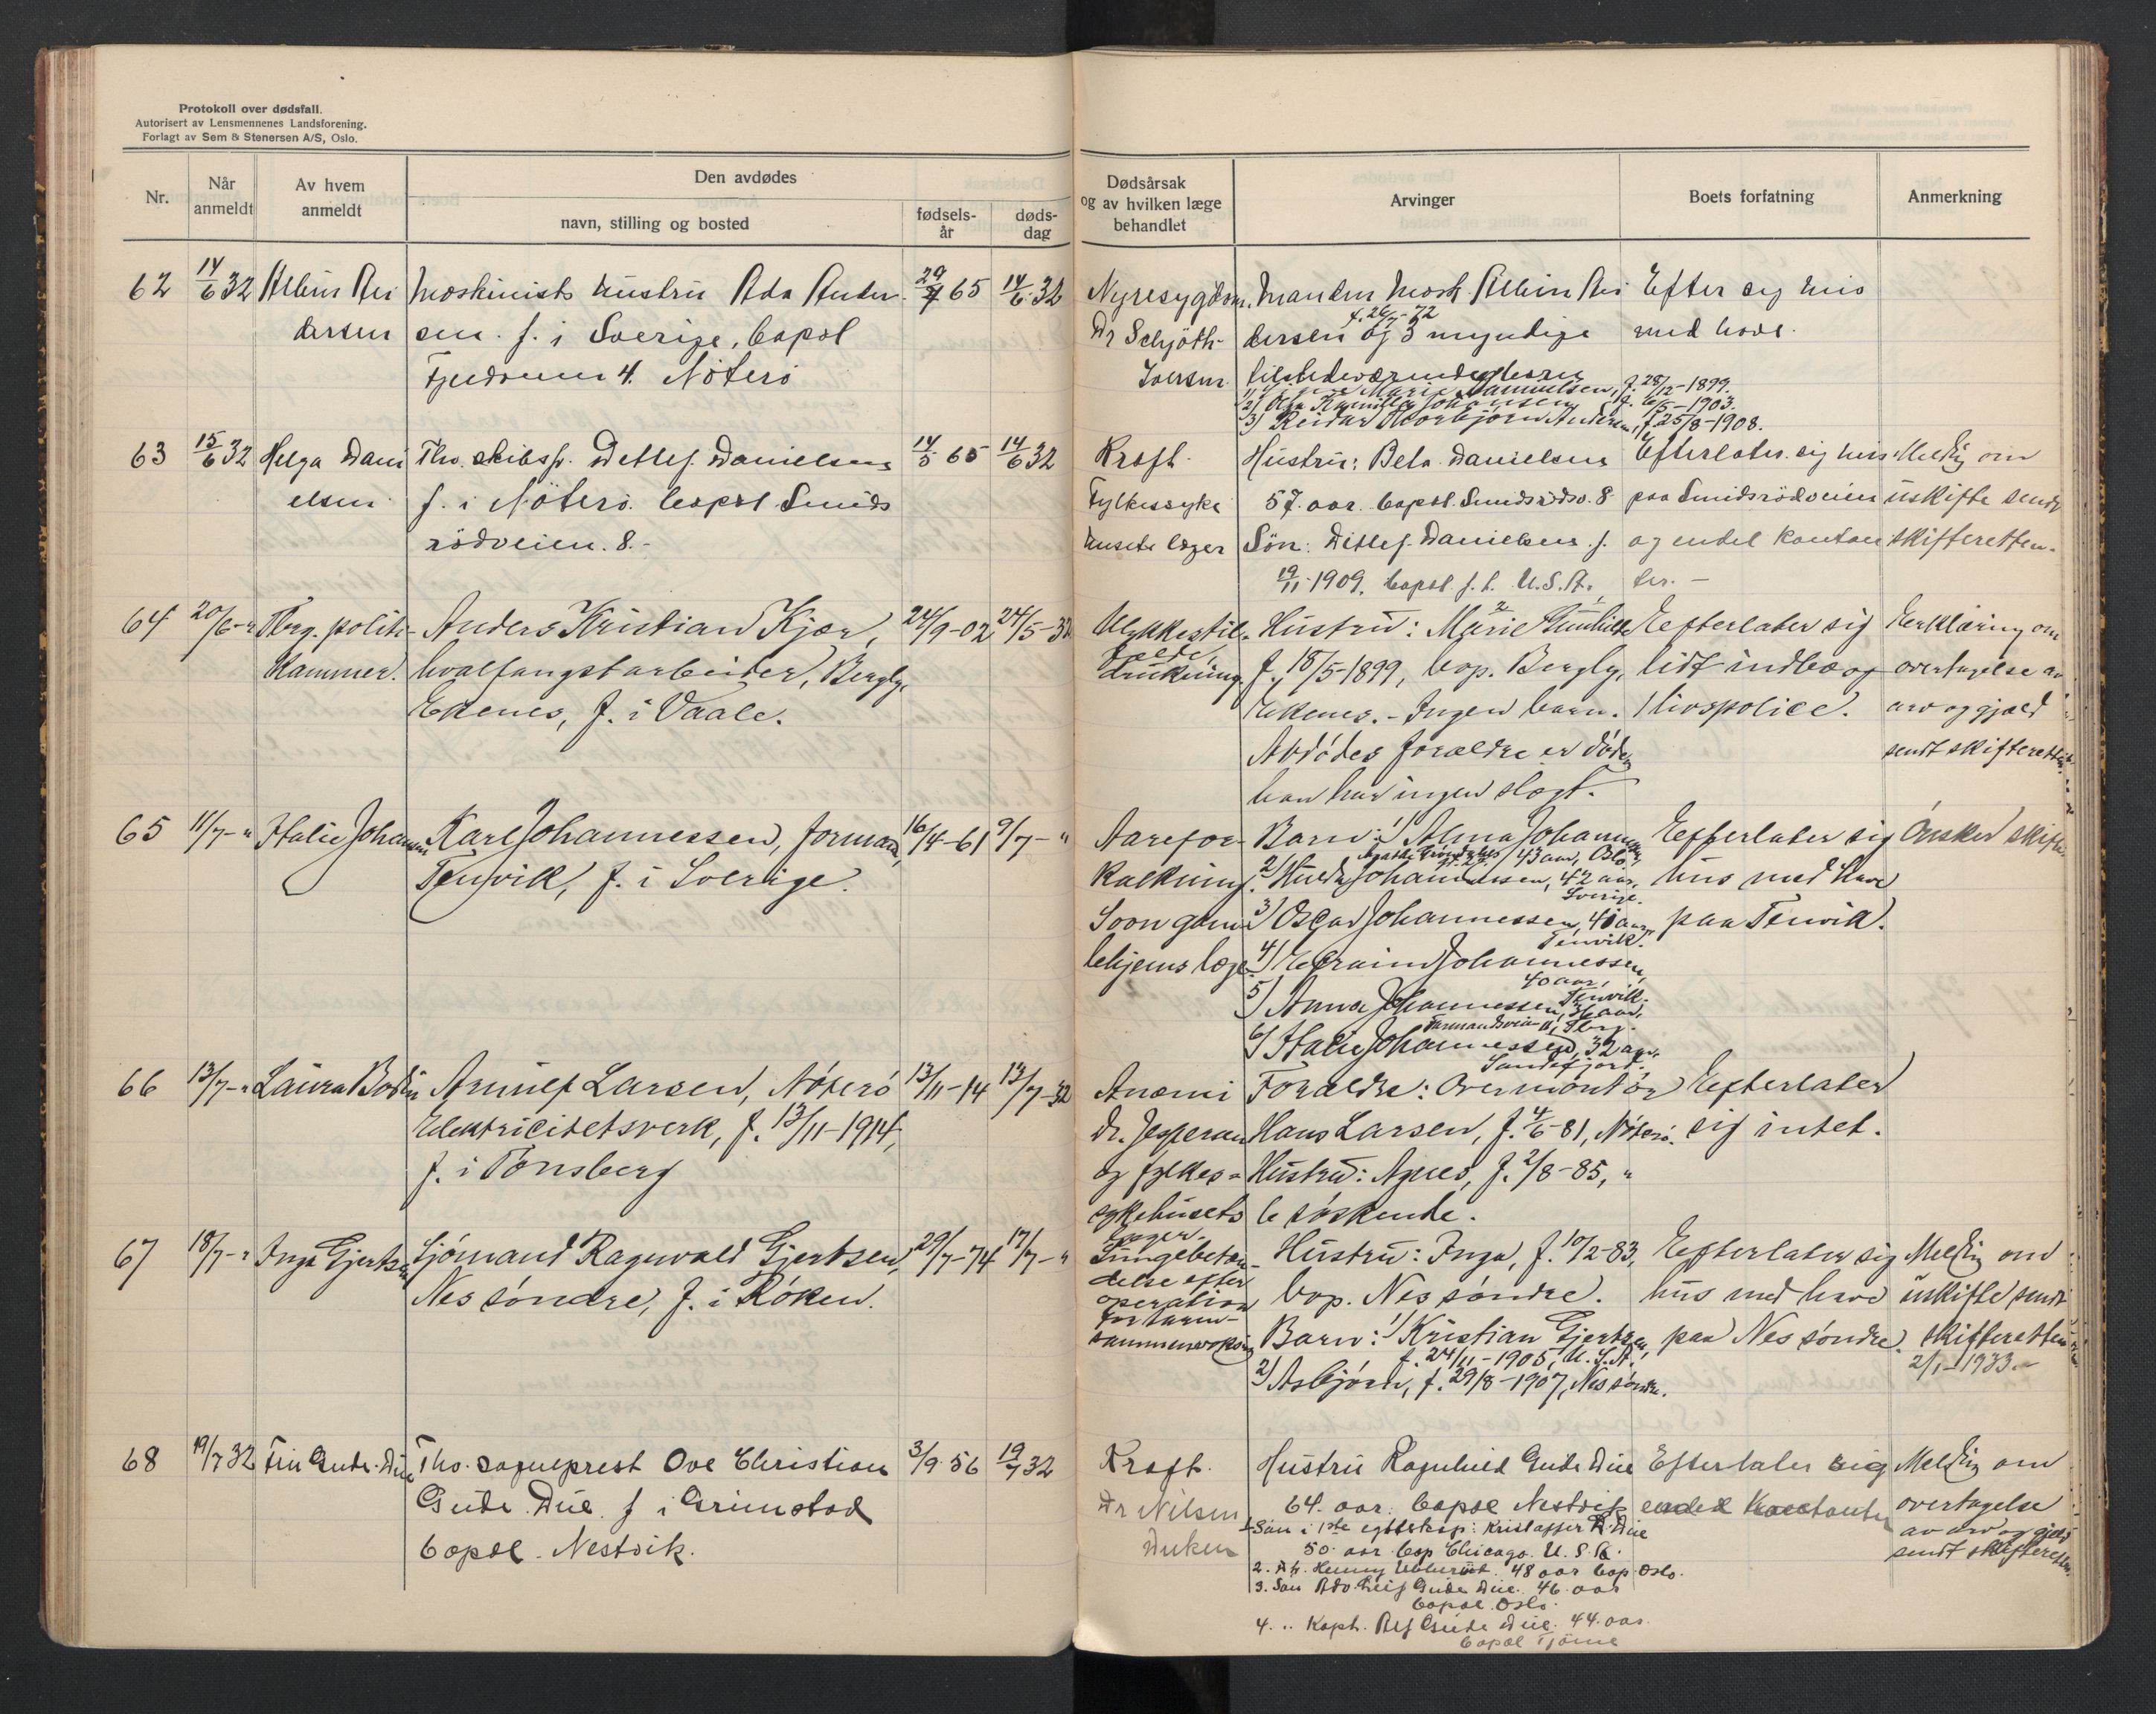 Protokoll over dødsfall.
Autorisert av Lensmennenes Landsforening.
Forlagt av Sem & Stenersen A/S, Oslo.
Nr.
Når anmeldt
Av hvem anmeldt
Den avdødes
navn, stilling og bosted
fødsels-år
døds-dag
Dødsårsak og av hvilken læge behandlet
Arvinger
Boets forfatning
Anmerkning
62 14/6 32 Albin An Maskinists hustru Ada Ander 29/7 65 14/6 32 Nyresygdom. Manden Mask. Albin An Efter sig hus
dersen sen. f. i Sverige, bopæl Dr Schjøth- dersen f. 26/7-72 og 3 myndige med have.
4. Nøterø Iversen
Marie Samuelsen, f. 28/12-1899.
2) Olga Kamilla Johansen f. 6/5-1903.
3) Reidar Thorbjørn Andersen, f. 25/8-1908.
63 15/6 32 Helga Dani Fhv. skibsf. Detlef Danielsen 14/5 65 14/6 32 Kræft. Hustru: Beta Danielsen Efterlater sig hus Meldig om
elsen f. i Nøterø. bopæl Smids Fylkessyke 57. aar. bopæl. Smidsrödv. 8 paa Smidsrödveien uskifte sendt
rödveien. 8.- husets læger Sön: Ditlef Danielsen f. og endel kontan skifteretten.
19/11-1909. bopæl f. t. U.S.A. ter. -
64 20/6-" Tbrg. politi- Anders Kristian Kjær, 24/9-02 24/5-32 Ulykkestil- Hustru: Marie Gunhilde Efterlater sig Erklæring om
kammer. hvalfangstarbeider, Bergly, fælde drukning f. 18/5-1899, bop. Bergly, lidt indbo og overtagelse av
Ekenes, f. i Vaale. Ekenes. - Ingen barn. 1 livspolice. arv og gjæld
Avdødes forældre er døde, sendt skifteretten.
han har ingen slegt.
65 11/7-" Italie Johannessen Karl Johannessen, formand, 16/4-61 9/7-" Aarefor- Barn: 1) Alma Johannessen, Efterlater sig Ønsker skifte
Tenvik, f. i Sverige. 43 aar, Oslo,
kalkning. 2) Hulda Johannessen, 42 aar, Sverige. hus med have
Soon gam- 3) Oscar Johannessen, 41 aar, Tenvik. paa Tenvik.
lehjems læge. 4) Efraim Johannessen, 40 aar, Tenvik.
5) Anna Johannessen, 36 aar,
Farmandsvein 11, Tbrg.
6) Italie Johannessen, 32 aar, Sandefjord.
66 13/7-" Laura Bodin Arnulf Larsen, Nøterø 13/11-14 13/7-32 Anæmi Forældre: Overmontør Efterlater
Elektricitetsverk, f. 13/11-1914, Dr. Jespersen Hans Larsen, f. 4/6-81, Nøterø. sig intet.
f. i Tønsberg og fylkes- Hustru: Agnes, f. 2/8-85, "
sykehusets læger. 6 søskende.
67 18/7-" Inga Gjertsen Sjømand Ragnvald Gjertsen, 29/7-74 17/7-" Lungebetæn- Hustru: Inga, f. 10/2-83, Efterlater sig Meldig om
Nes søndre, f. i Røken. delse efter bop. Nes søndre. hus med have uskifte sendt
operation for tarm- sammenvoksing Barn: 1) Kristian Gjertsen, paa Nes søndre. skifteretten
f. 24/11-1905, U.S.A. 2/1-1933.-
2) Asbjørn, f. 29/8-1907, Nes søndre.
68 19/7 32 Fru Gude Due Fhv. sogneprest Ove Christian 3/9 56 19/7 32 Kræft. Hustru Ragnhild Gude Due Efterlater sig Meldig om
Gude Due. f i Grimstad Dr Nilsen 64. aar. bopæl Nestvik endel kontanter overtagelse
bopæl. Nestvik. 1 Sön i 1ste egteskap: Kristoffer Due av arv og gjæld
50. aar bop Chicago. U.S.A. sendt skifteretten.
2. Henny 48 aar bop. Oslo.
3. Sön Adv. Leif Gude Due. 46. aar bopæl. Oslo.
4. " Kapt. Alf Gude Due. 44. aar.
bopæl Tjöme